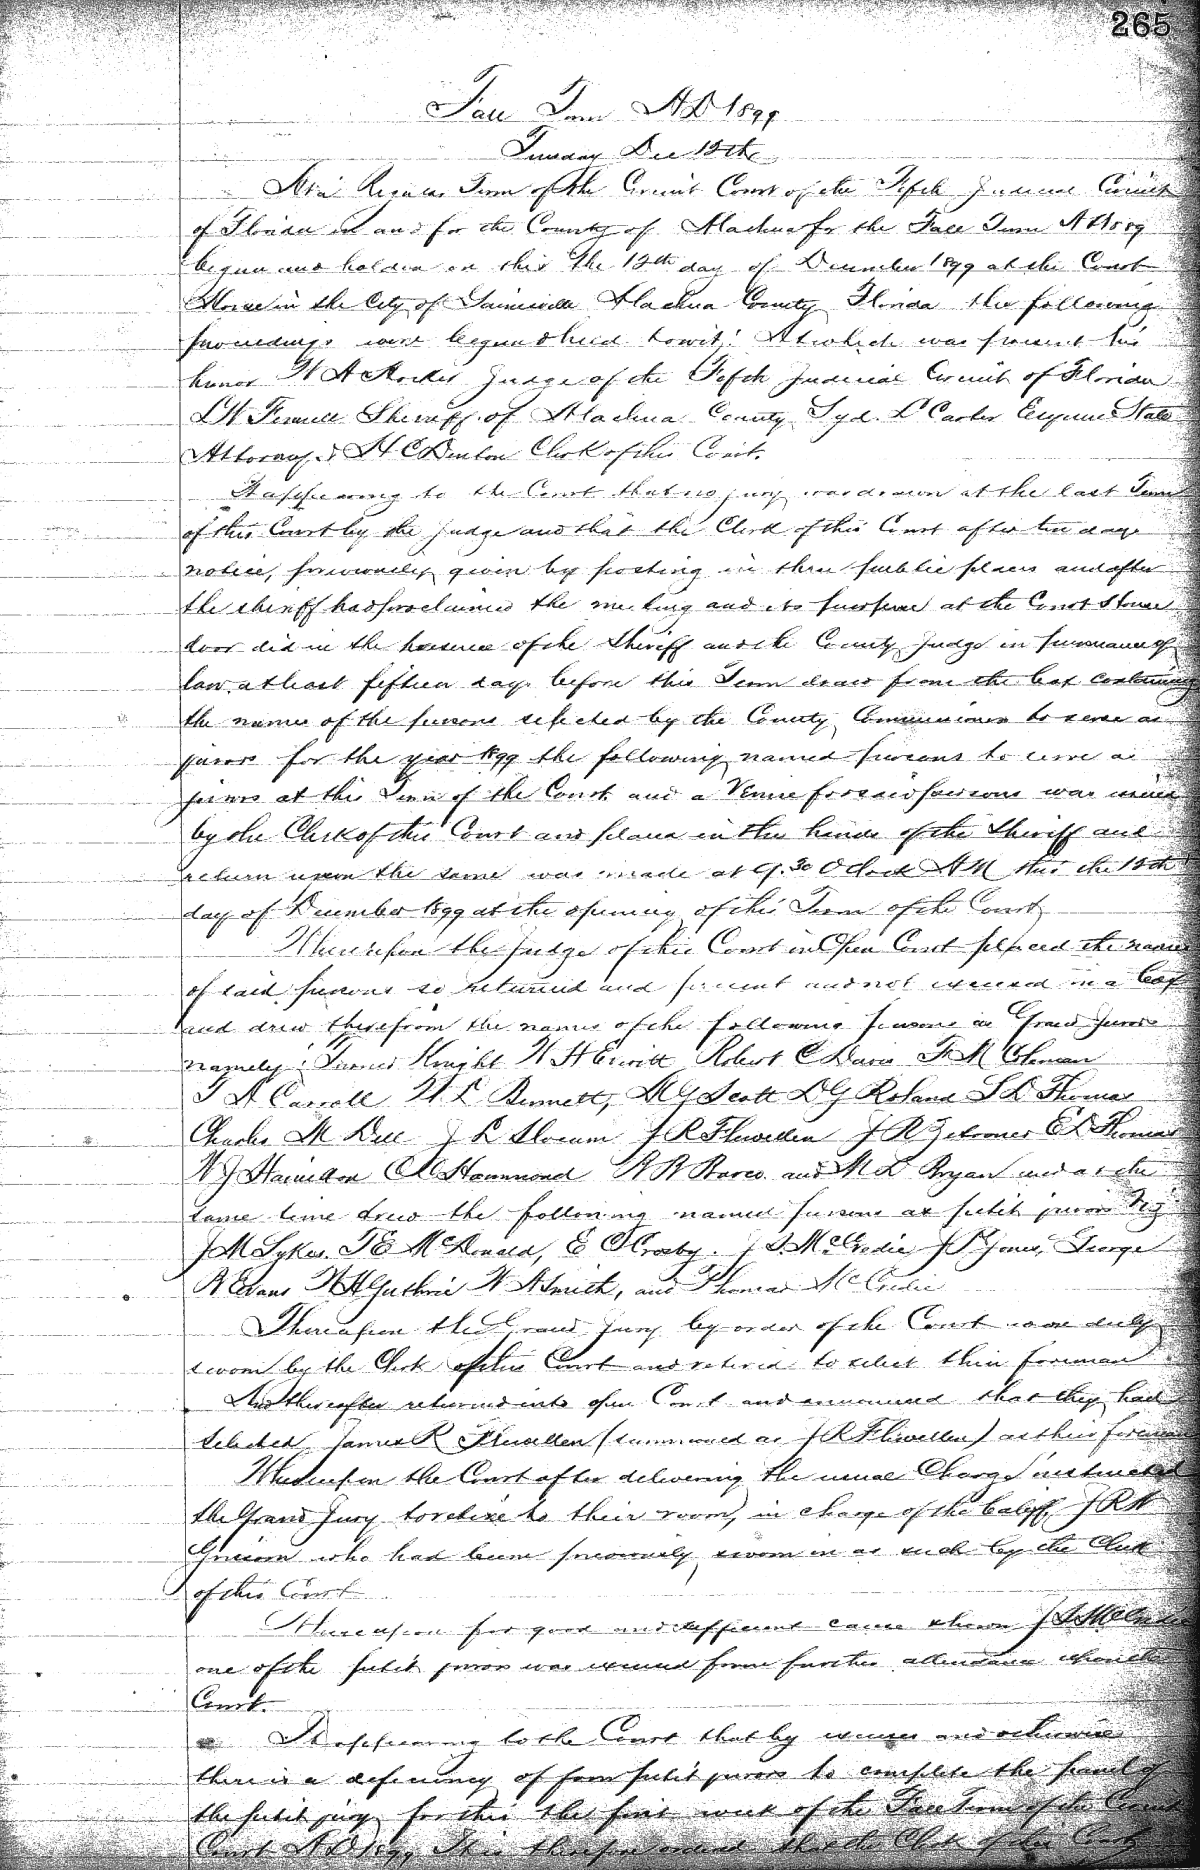 265
Fall Term AD 1899
Tuesday Dec 12th
At a Regular Term of the Circuit Court of the Fifth Judicial Circuit
of Florida in and for the County of Alachua for the Fall Term AD 1899
begun and holden on this the 12th day of December 1899 at the Court
House in the City of Gainesville Alachua County Florida the following
proceedings were begun & held towit: At which was present his
honor W A Hocker Judge of the Fifth Judicial Circuit of Florida
L W Fennell Sheriff of Alachua County Syd L Carter Esquire State
Attorney & H C Denton Clerk of this Court.
It appearing to the Court that no jury was drawn at the last Term
of this Court by the Judge and that the Clerk of this Court after ten days
notice, previously given by posting in three public places and after
the sheriff had proclaimed the meeting and its purpose at the Court House
door did in the presence of the Sheriff and the County Judge in pursuance of
law at least fifteen days before this Term draw from the box containing
the names of the persons selected by the County Commissioners to serve as
jurors for the year 1899 the following named persons to serve as
jurors at this Term of the Court and a Venire for said persons was issued
by the Clerk of this Court and placed in the hands of the Sheriff and
return upon the same was made at 9.30 O clock AM this the 12th
day of December 1899 at the opening of this Term of the Court
Whereupon the Judge of this Court in Open Court placed the names
of said persons so returned and present and not excused in a box
and drew therefrom the names of the following persons as Grand Jurors
namely: Turner Knight W H Robert C Davis F M Coleman
T A Carroll W L Bennett, M G Scott L G Roland S L Thomas
Charles M Dell J L Slocum J R Fluwellen J R Zetrouer E L Thomas
W J C A Hammond R R and M L Bryan and at the
same time drew the following named persons as petit jurors viz
J M Sykes. T E McDonald, E C Crosby. J D McCredie J P Jones, George
R Evans W H Guthrie W A Smith, and Thomas McCredie
Thereupon the Grand Jury by order of the Court were duly
sworn by the Clerk of this Court and retired to select their foreman
And thereafter returned into open Court and announced that they had
selected James R Fluwellen (summoned as J R Fliwellen) as their foreman
Whereupon the Court after delivering the usual Charge instructed
the Grand Jury to retire to their room, in charge of the bailiff J R W
who had been previously sworn in as such by the Clerk
of this Court
Whereupon for good and sufficient cause shown J D McCredie
one of the petit jurors was excused from further attendance upon the
Court.
It appearing to the Court that by excuses and otherwise
there is a deficiency of four petit jurors to complete the panel of
the petit jury for this the first week of the Fall Term of the Circuit
Court AD 1899 It is therefore ordered that the Clerk of this Court